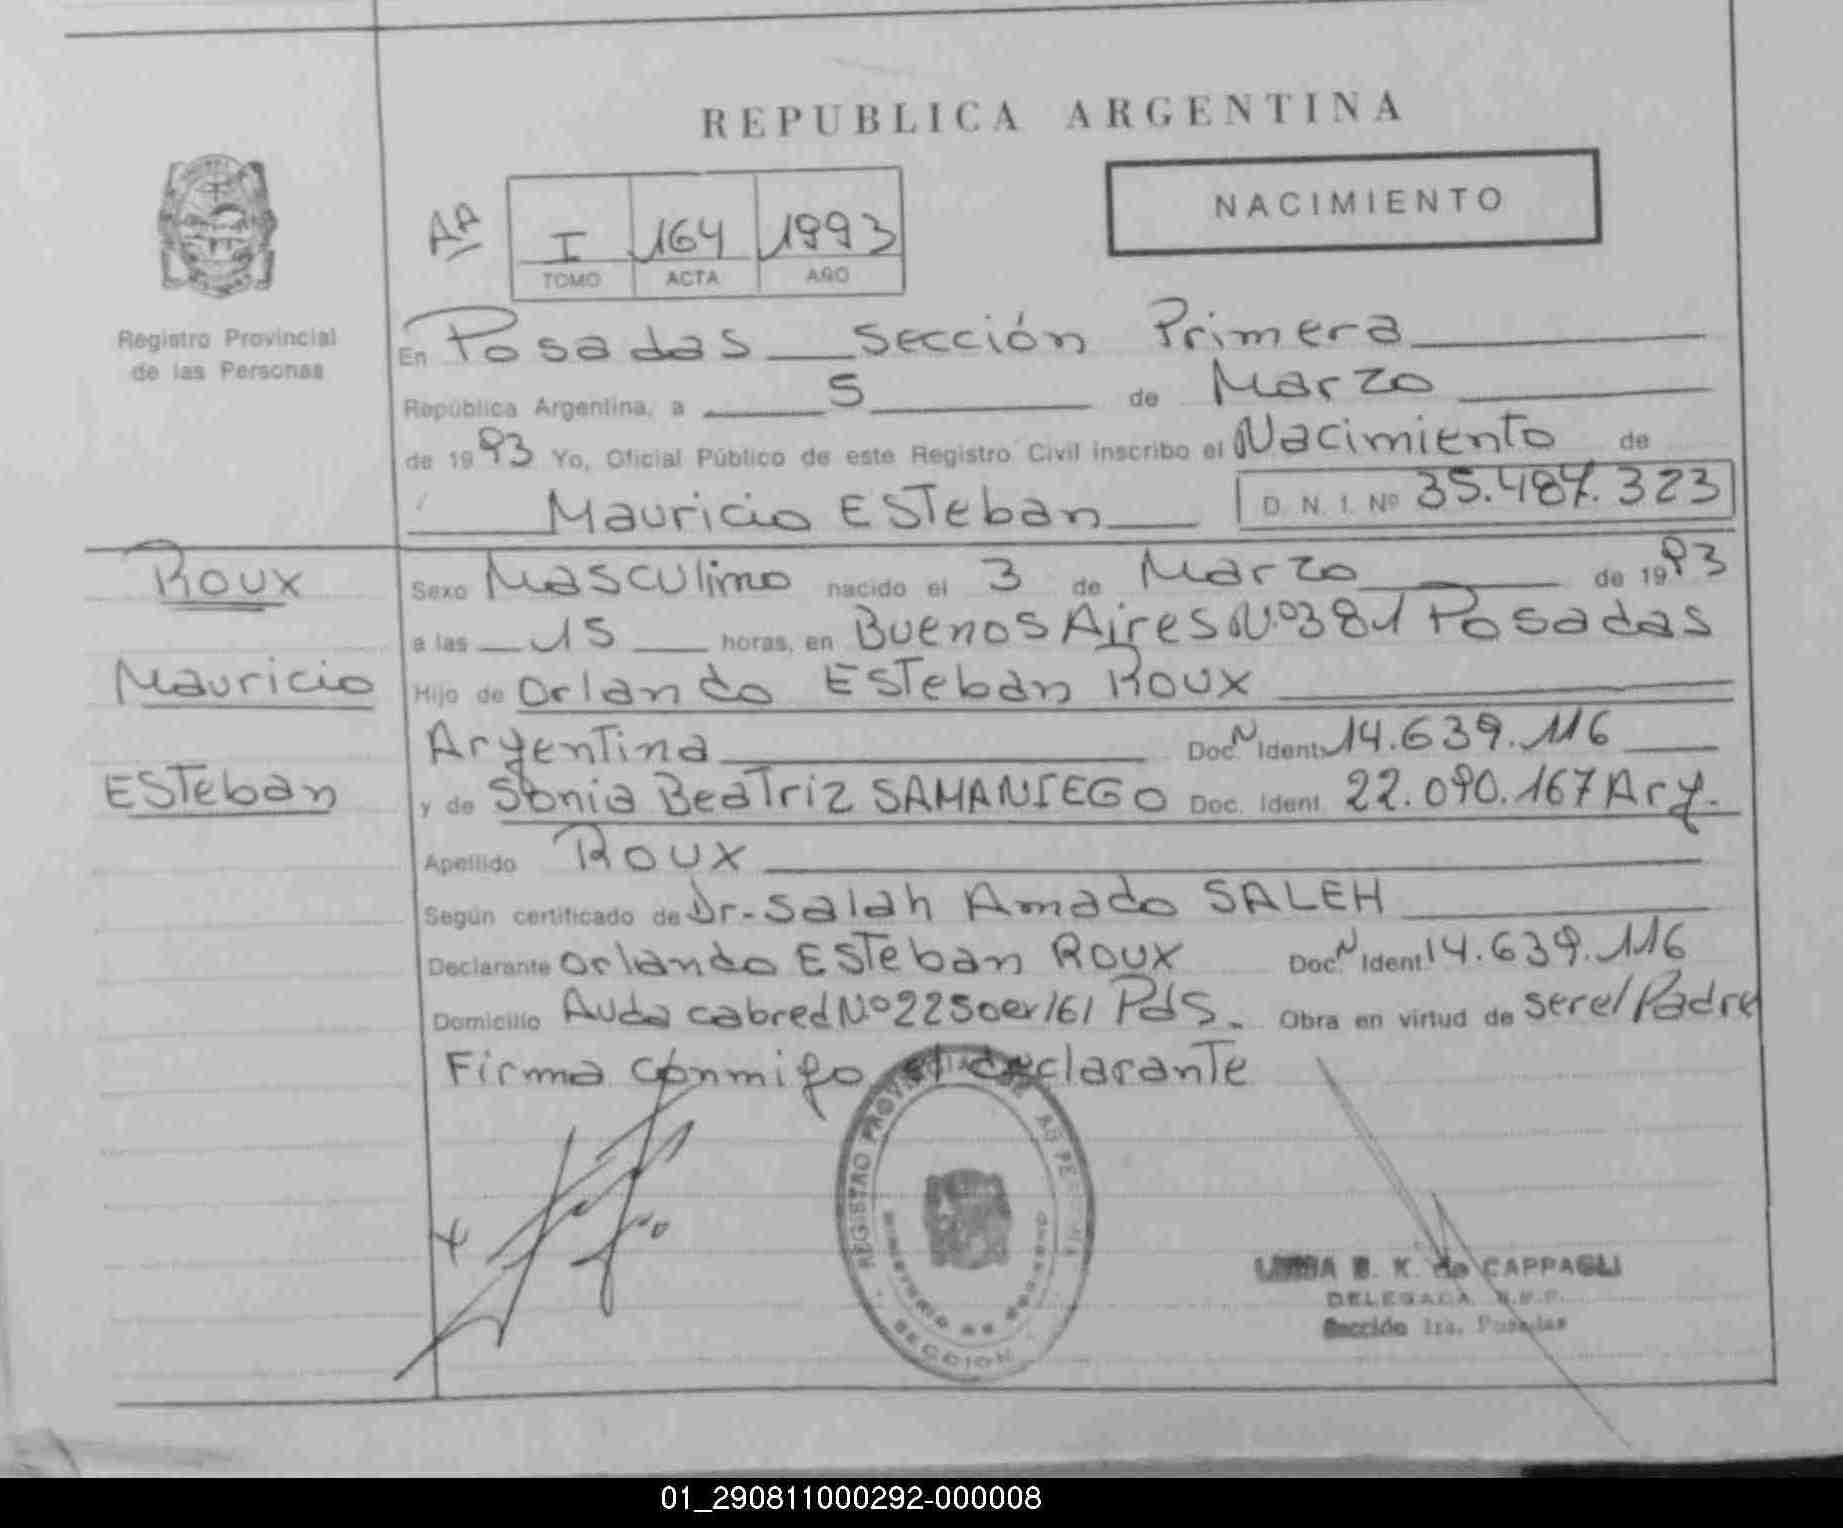 REPUBLICA ARGENTINA
NACIMIENTO
Aº
I 164 1993
TOMO ACTA AÑO
Registro Provincial
de las Personas
En Posadas Sección Primera
República Argentina, a 5 de Marzo
de 1993 Yo, Oficial Público de este Registro Civil inscribo el Nacimiento de
Mauricio Esteban D. N. I. Nº 35.487.323
Roux
Mauricio
Esteban
Sexo Masculino nacido el 3 de Marzo de 1993
a las 15 horas, en Buenos Aires Nº381 Posadas
Hijo de Orlando Esteban Roux
Argentina Doc. Ident. 14.639.116
y de Sonia Beatriz SAMANIEGO Doc. Ident. 22.090.167 Arg.
Apellido Roux
Según certificado de Dr. Salah Amado SALEH
Declarante Orlando Esteban Roux Doc. Ident. 14.639.116
Domicilio Avda Cabred Nº 2250 Pds. Obra en virtud de ser el Padre
Firma conmigo el declarante
REGISTRO
SECCION
B. K. de CAPPAGLI
DELEGADA R.P.P.
Sección 1ra. Posadas
01_290811000292-000008